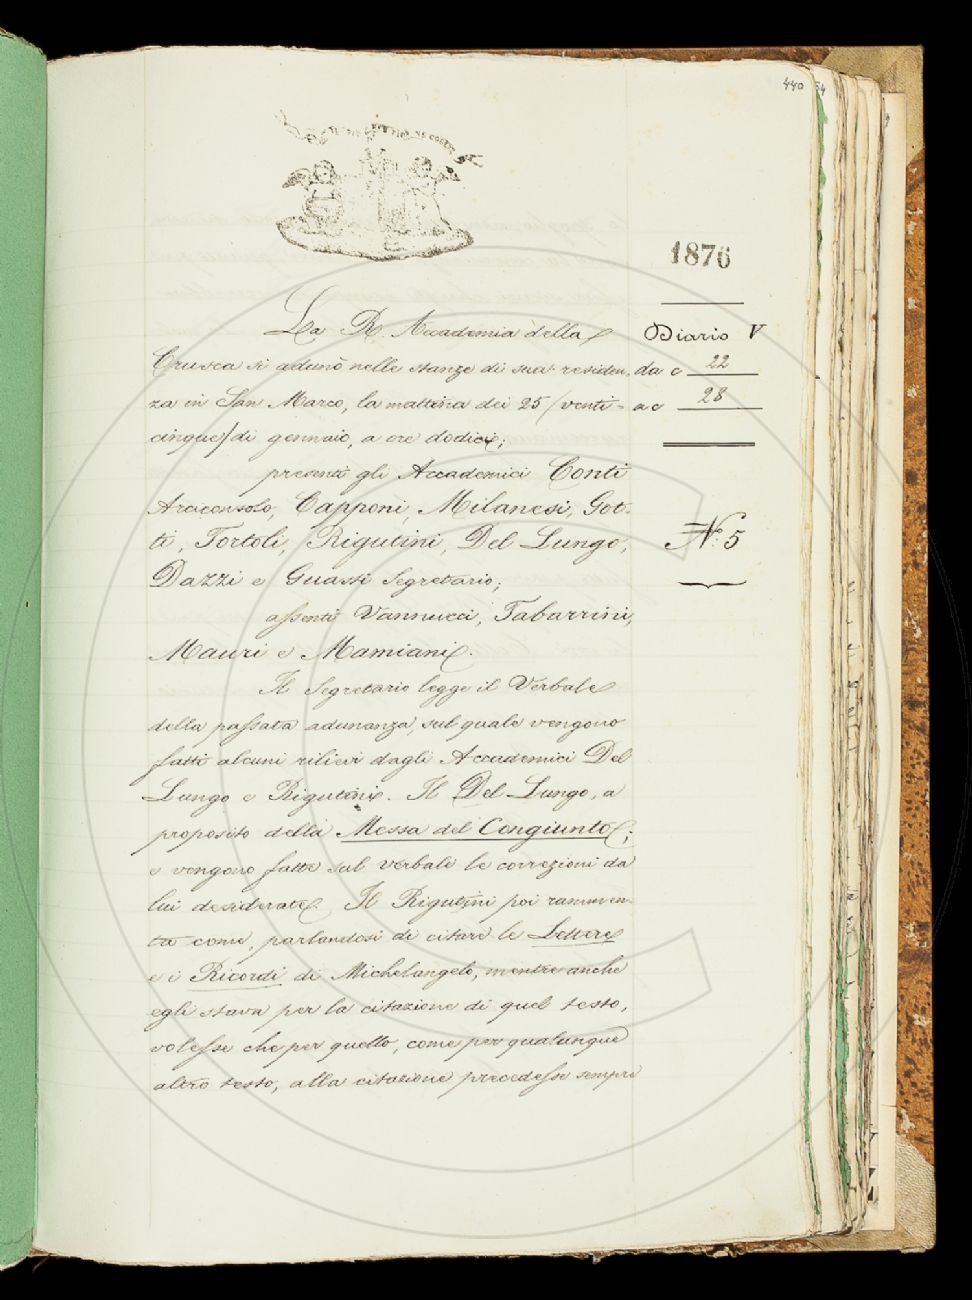 440
54
1876
La R. Accademia della
Diario V
Crusca si adunò nelle stanze di sua residen-
da c 22
za in San Marco, la mattina dei 25 (venti-
a c 28
cinque) di gennaio, a ore dodici;
presenti gli Accademici Conti
Arciconsolo, Capponi, Milanesi, Got-
ti, Tortoli, Rigutini, Del Lungo,
N.º 5
Dazzi e Guasti Segretario;
assenti Vannucci, Tabarrini,
Mauri e Mamiani.
Il Segretario legge il Verbale
della passata adunanza, sul quale vengono
fatti alcuni rilievi dagli Accademici Del
Lungo e Rigutini. Il Del Lungo, a
proposito della Messa del Congiunto;
e vengono fatte sul verbale le correzioni da
lui desiderate. Il Rigutini poi rammen-
ta come, parlandosi di citare le Lettere
e i Ricordi di Michelangelo, mentre anche
egli stava per la citazione di quel testo,
volesse che per quello, come per qualunque
altro testo, alla citazione precedesse sempre